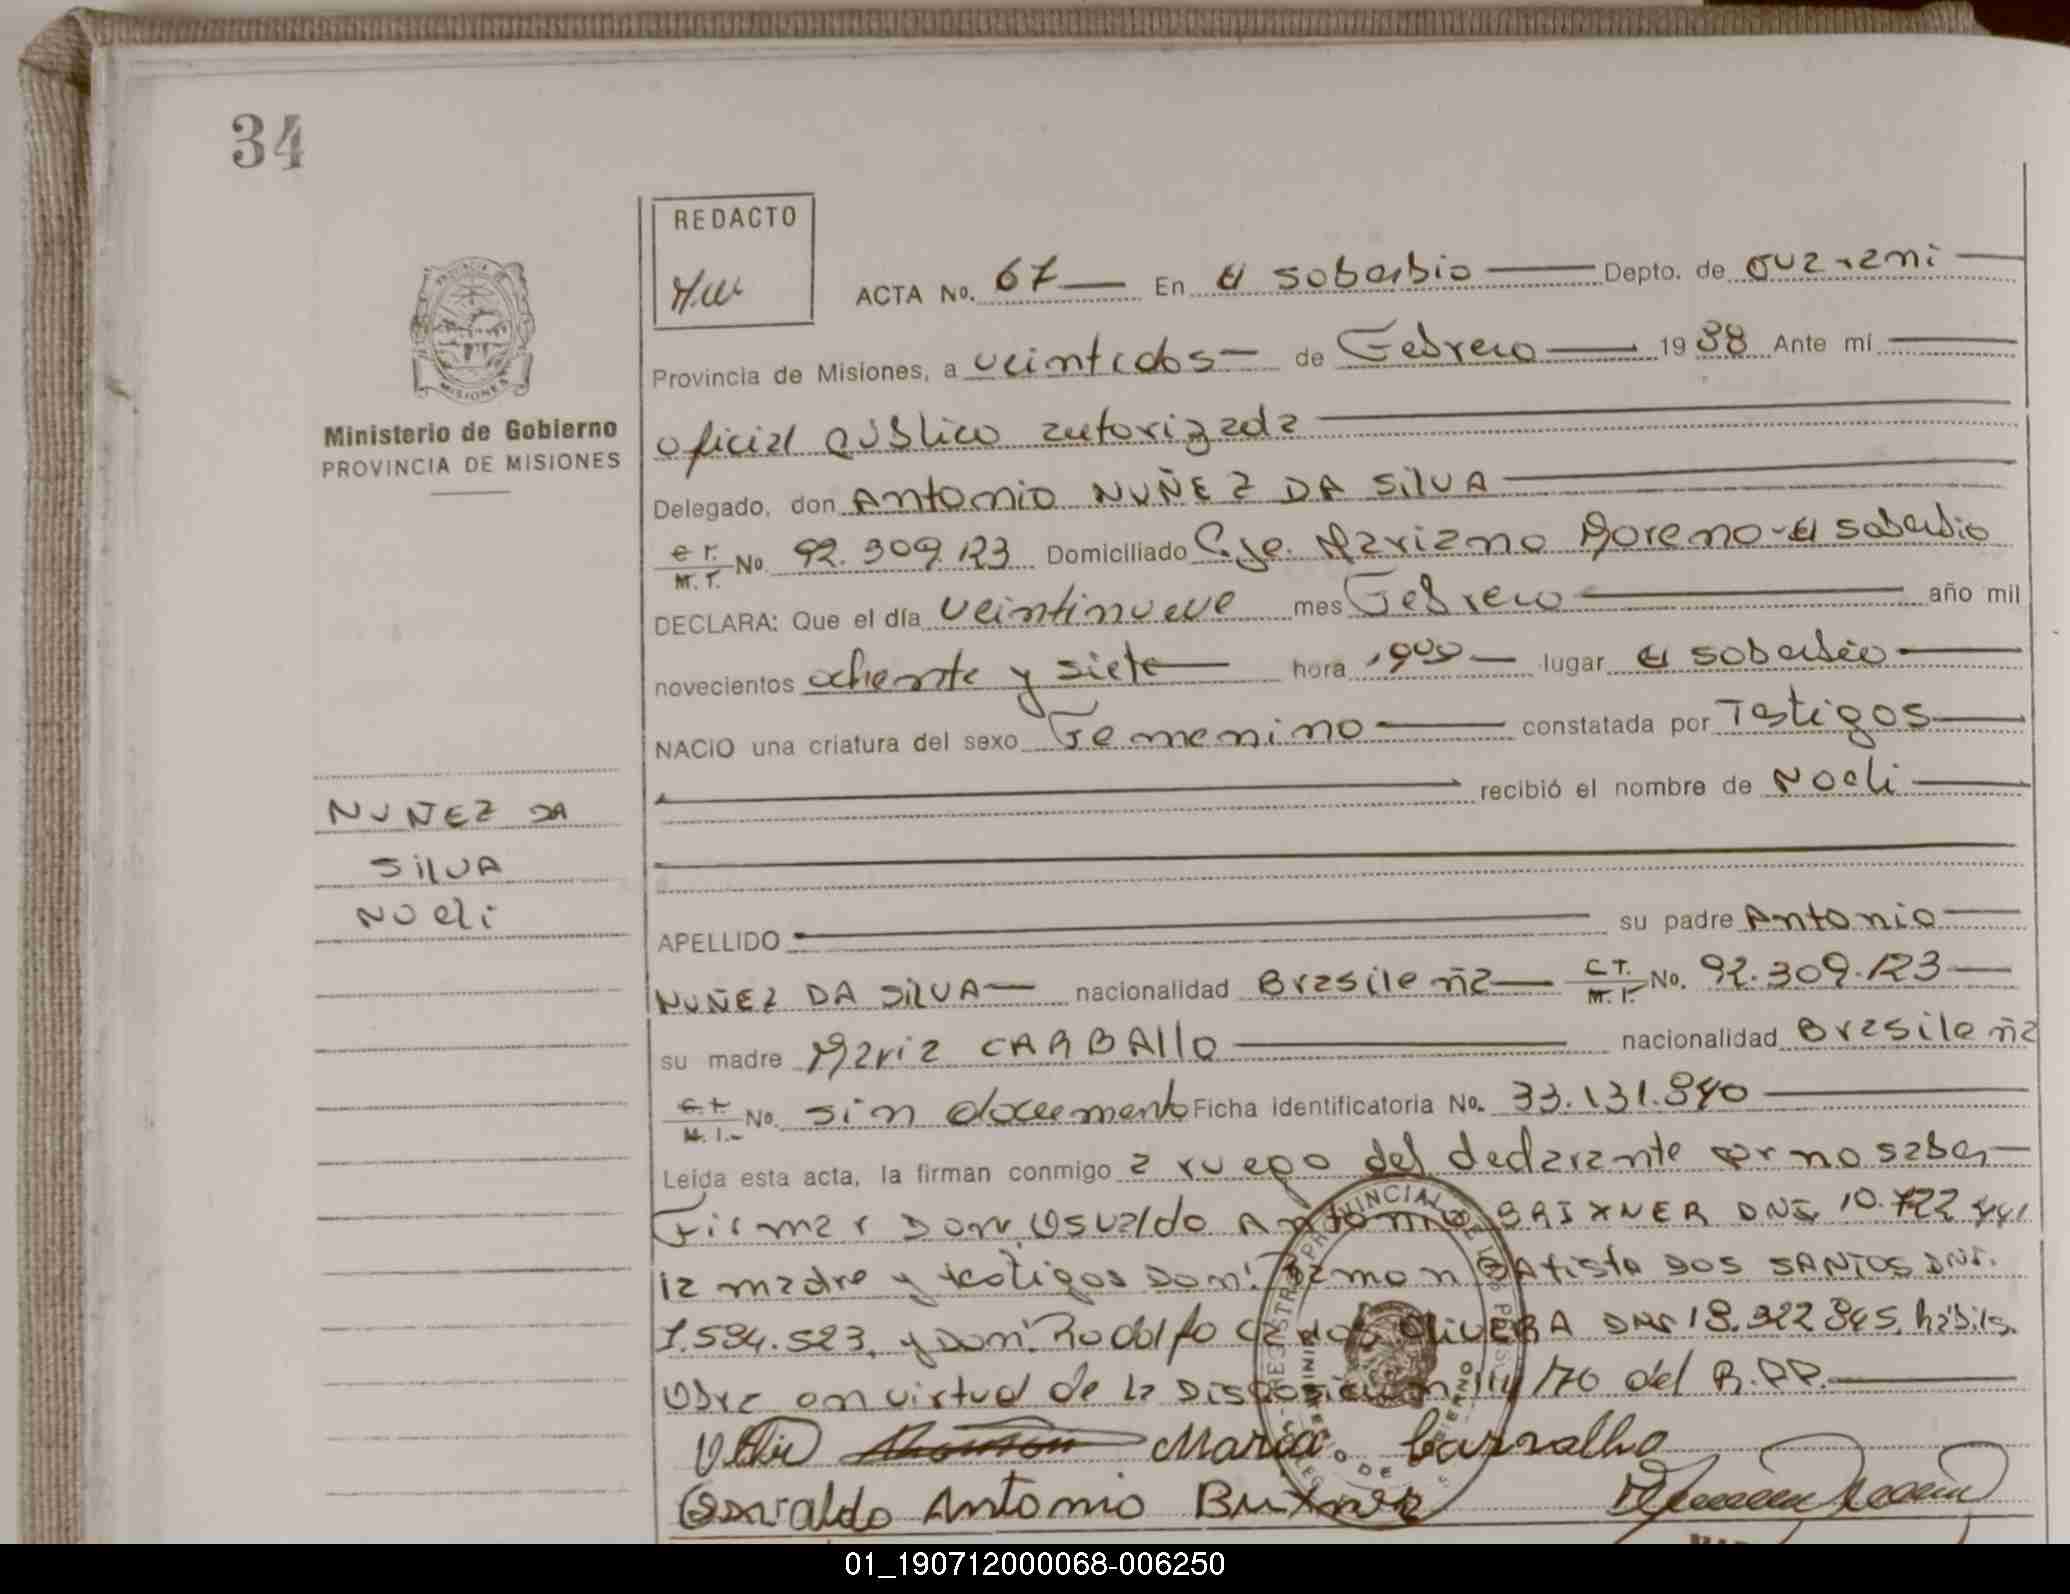 34
REDACTO
ACTA No. 67 En El Soberbio Depto. de Guarani
Provincia de Misiones, a veintidos de Febrero 1988 Ante mi
oficial público autorizada
Delegado, don Antonio NUÑEZ DA SILVA
C.I. M.I. No. 92.309.123 Domiciliado Cje. Mariano Moreno - El Soberbio
DECLARA: Que el día veintinueve mes Febrero año mil
novecientos ochenta y siete hora 1900 lugar El Soberbio
NACIO una criatura del sexo Femenino constatada por Testigos
recibió el nombre de Noeli
APELLIDO su padre Antonio
NUÑEZ DA SILVA nacionalidad Brasileña C.I. M.I. No. 92.309.123
su madre Maria CARBALLO nacionalidad Brasileña
C.I. M.I. No. sin documento Ficha identificatoria No. 33.131.840
Leída esta acta, la firman conmigo a ruego del declarante por no saber
Firmar Don. Osvaldo Antonio BRIXNER DNI. 10.722
la madre y testigos Don: Ramon BAtista DOS SANTOS DNI.
7.594.523, y Don: Rodolfo OLIVERA DNI 18.922.845, hábiles.
Obra en virtud de la Disposicion 114/70 del R.PP.
Maria Carvalho
Osvaldo Antonio Brixner
PROVINCIA DE MISIONES
Ministerio de Gobierno
PROVINCIA DE MISIONES
NUÑEZ DA
SILVA
Noeli
01_190712000068-006250